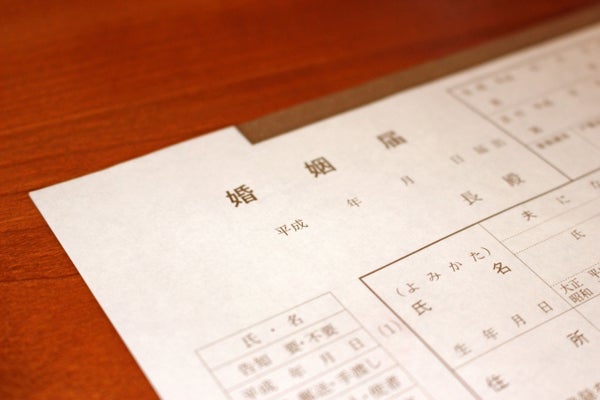 婚姻届
平成 年 月 日 届出
長 殿
夫 に な
(よみかた)
氏 名
氏
(1)
生年月日
大正 平
昭和
住 所
氏・名
告知 要・不要
平成 年 月 日
郵送・手渡し
・使者